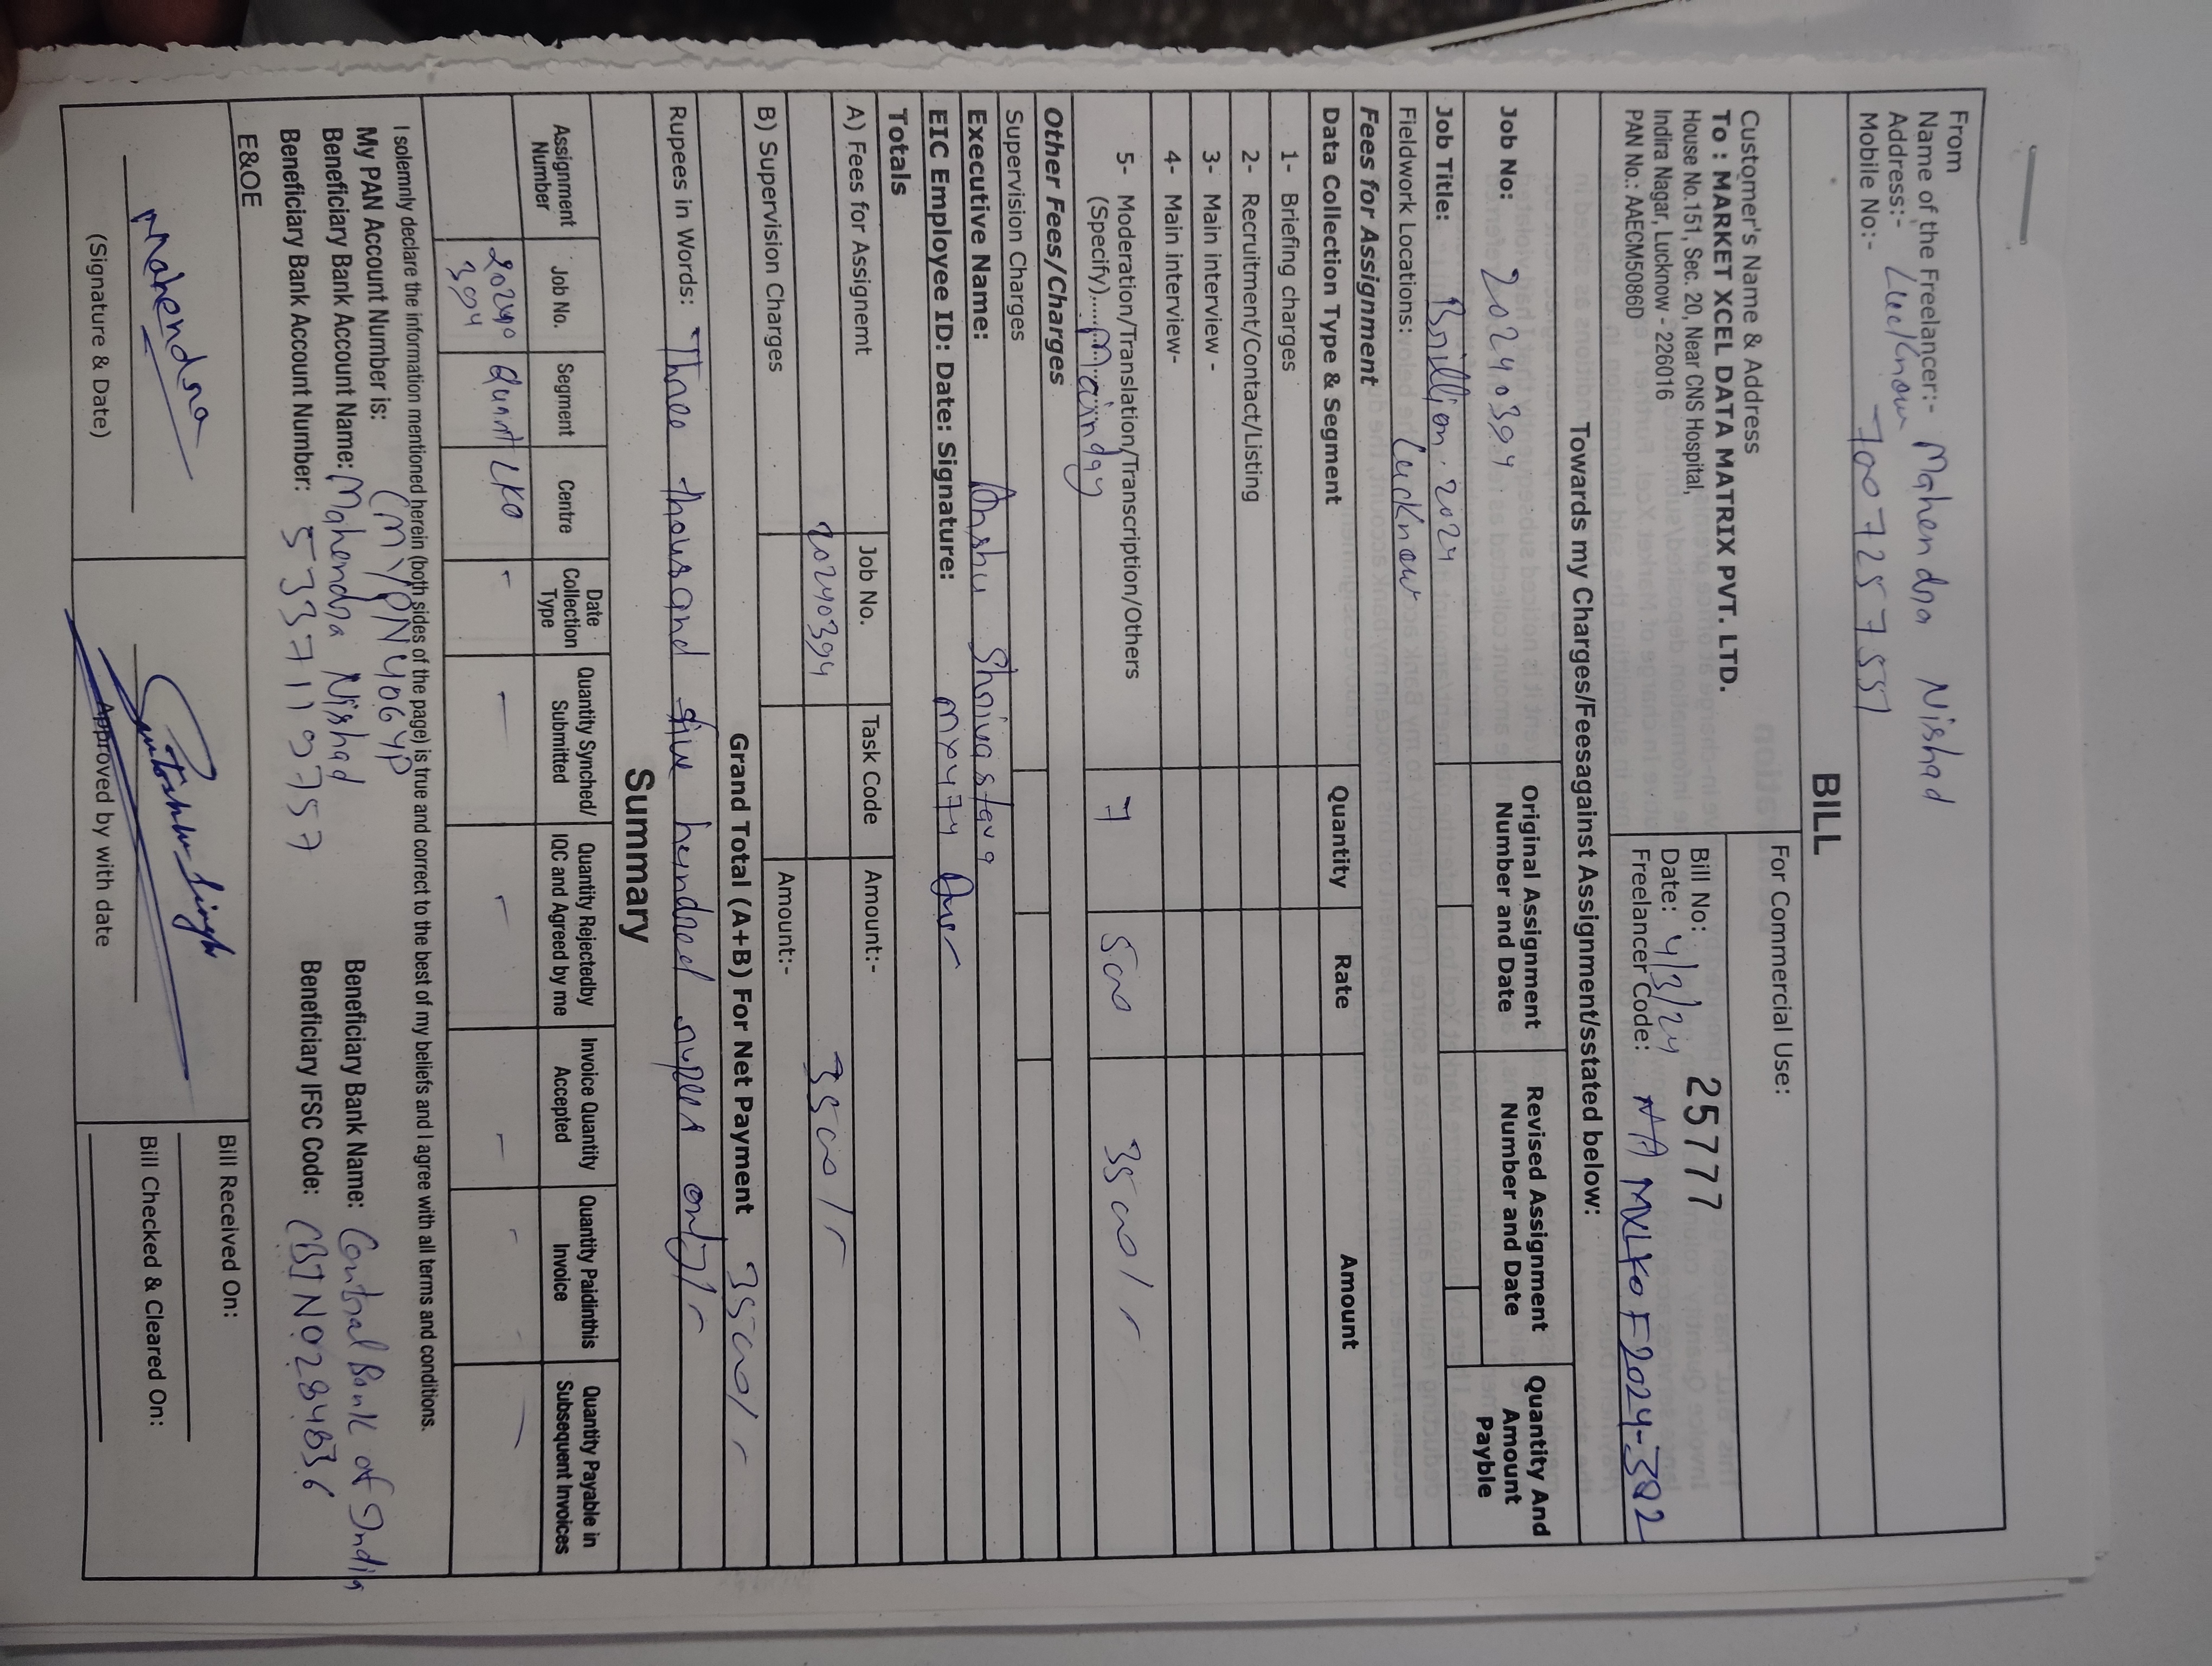 From
Name of the Freelancer:- Mahendra Nishad
Address:- Lucknow
Mobile No:- 7007257557
BILL
Customer's Name & Address
To : MARKET XCEL DATA MATRIX PVT. LTD.
House No.151, Sec. 20, Near CNS Hospital,
Indira Nagar, Lucknow - 226016
PAN No.: AAECM5086D
For Commercial Use:
Bill No: 25777
Date: 4/3/24
Freelancer Code: NA MXLKOF2024-392
Towards my Charges/Feesagainst Assignment/sstated below:
Job No: 20240394
Original Assignment Number and Date
Revised Assignment Number and Date
Quantity And Amount Payble
Job Title: Brillion 2024
Fieldwork Locations: Lucknow
Fees for Assignment
Data Collection Type & Segment Quantity Rate Amount
1- Briefing charges
2- Recruitment/Contact/Listing
3- Main interview -
4- Main interview-
5- Moderation/Translation/Transcription/Others
(Specify).... Mainday 7 500 3500/-
Other Fees/Charges
Supervision Charges
Executive Name: Anshu Shrivastava
EIC Employee ID: Date: Signature: MX0474
Totals
A) Fees for Assignemt Job No. Task Code Amount:-
20240394 3500/-
B) Supervision Charges Amount:-
Grand Total (A+B) For Net Payment 3500/-
Rupees in Words: Three thousand five hundred rupees only/-
Summary
Assignment Number Job No. Segment Centre Date Collection Type Quantity Synched/ Submitted Quantity Rejectedby IQC and Agreed by me Invoice Quantity Accepted Quantity Paidinthis Invoice Quantity Payable in Subsequent Invoices
20240394 Quant LKO - - - - - -
I solemnly declare the information mentioned herein (both sides of the page) is true and correct to the best of my beliefs and I agree with all terms and conditions.
My PAN Account Number is: CMYPN4064P
Beneficiary Bank Account Name: Mahendra Nishad Beneficiary Bank Name: Central Bank of India
Beneficiary Bank Account Number: 5337119757 Beneficiary IFSC Code: CBIN0284836
E&OE
Mahendra
(Signature & Date)
Approved by with date
Bill Received On:
Bill Checked & Cleared On: